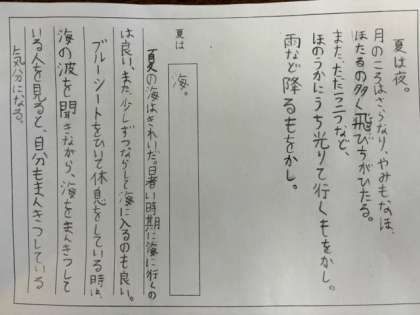 夏は夜。
月のころはさらなり、やみもなほ、
ほたるの多く飛びちがひたる。
また、ただ一つ二つなど、
ほのうかにうち光りて行くもをかし。
雨など降るもをかし。
夏は
海。
夏の海はきれいだ。暑い時期に海に行くの
は良い。また、少しずつならしじ海に入るのも良い。
ブルーシートをひいて休息をしている時は、
海の波を聞きながら、海をまんきつして
いる人を見ると、自分もまんきつしている
気分になる。